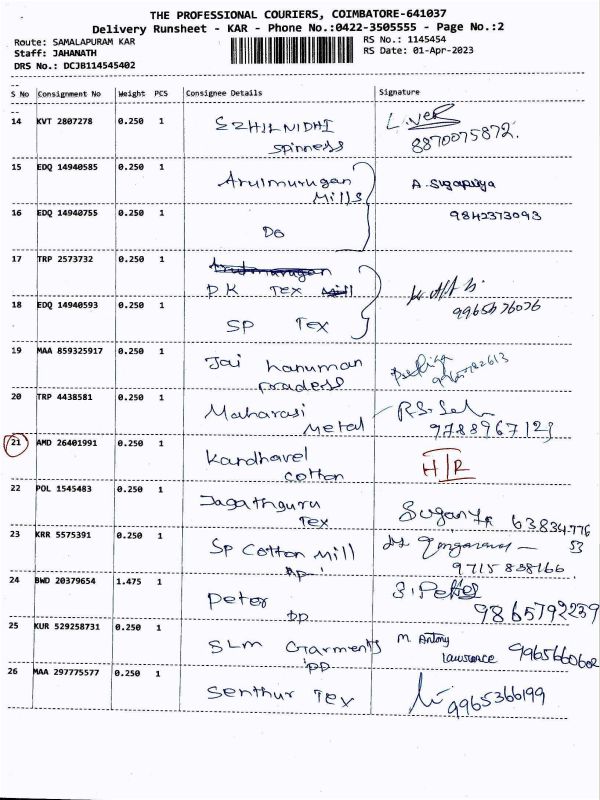 THE PROFESSIONAL COURIERS, COIMBATORE-641037
Delivery Runsheet - KAR - Phone No.:0422-3505555 - Page No.:2
Route: SAMALAPURAM KAR
RS No.: 1145454
Staff: JAHANATH
RS Date: 01-Apr-2023
DRS No.: DCJB114545402
S No Consignment No Weight PCS Consignee Details Signature
14 KVT 2807278 0.250 1 EZHILNIDHI
spinness 8870075872.
15 EDQ 14940585 0.250 1 Arulmurugan
Mills A. Sugapriya
16 EDQ 14940755 0.250 1 Do 9842373093
17 TRP 2573732 0.250 1
D.K TEX
18 EDQ 14940593 0.250 1 SP TEX
19 MAA 859325917 0.250 1 Jai hanuman
20 TRP 4438581 0.250 1 Maharasi
Metal
21 AMD 26401991 0.250 1 Kandhavel
cotton
22 POL 1545483 0.250 1 Jagathguru
Tex 63834776
53
23 KRR 5575391 0.250 1 SP Cotton Mill
9715838166
24 BWD 20379654 1.475 1 Peter
pp 9865792239
25 KUR 529258731 0.250 1 SLM Garments
pp M. Antony
lawrence 9965660602
26 MAA 297775577 0.250 1 Senthur Tex 9965366199